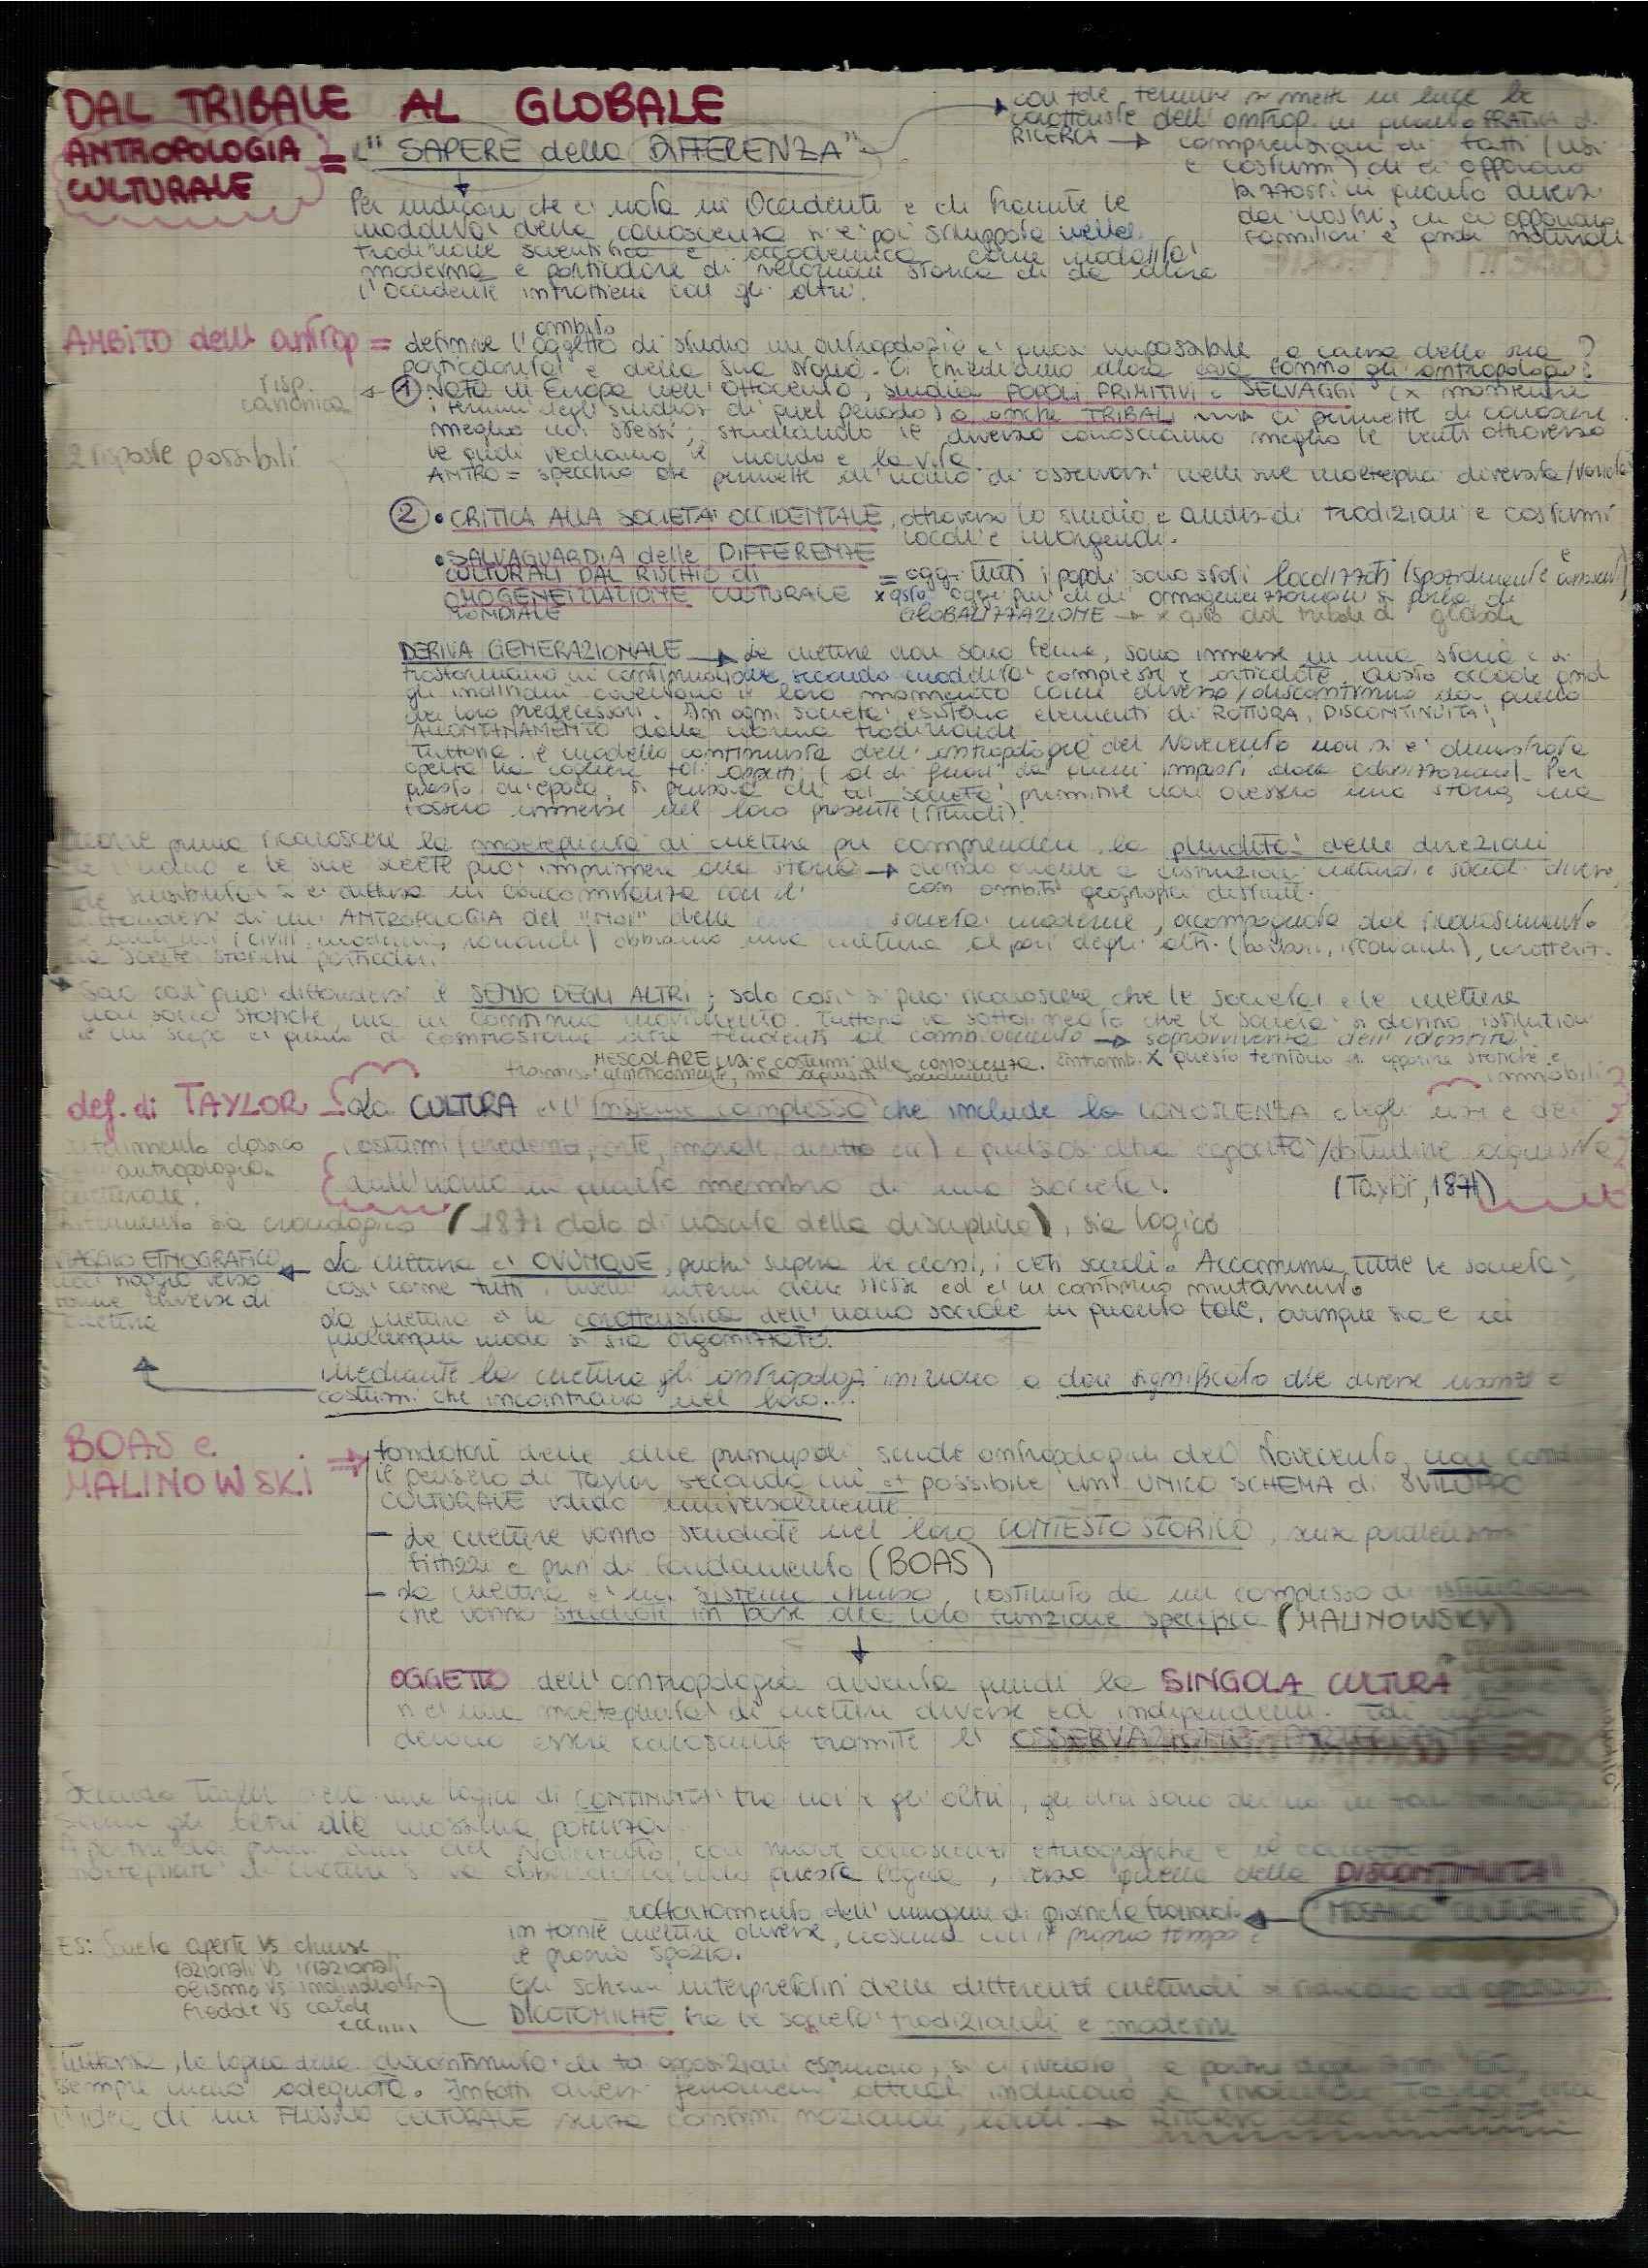 DAL TRIBALE AL GLOBALE
con tale termine si mette in luce le
caratterist. dell'antrop. in quanto PRATICA di
RICERCA → comprensione di fatti (usi
e costumi) che ci appaiono
bizzarri in quanto diversi
dai nostri, che ci appaiono
familiari e quindi naturali
ANTROPOLOGIA CULTURALE = "SAPERE della DIFFERENZA"
Per indicare che è nata in Occidente e che tramite le
modalità della conoscenza si è poi sviluppata nella
tradizione scientifica e accademica come modalità
moderna e particolare di relazione storica che da allora
l'Occidente intrattiene con gli altri.
AMBITO dell'antrop = definire l'oggetto ambito di studio in antropologia è quasi impossibile a causa della sua
particolarità e della sua storia. Ci chiediamo allora cosa fanno gli antropologi?
risp. canonica
① Nata in Europa nell'Ottocento, studia POPOLI PRIMITIVI e SELVAGGI (x mantenere
i termini degli studiosi di quel periodo) o anche TRIBALI ma ci permette di conoscere
meglio noi stessi; studiando il diverso conosciamo meglio le lenti attraverso
le quali vediamo il mondo e la vita.
2 risposte possibili
ANTRO = specchio che permette all'uomo di osservarsi nelle sue molteplici diversità/varietà
② • CRITICA ALLA SOCIETA' OCCIDENTALE, attraverso lo studio e analisi di tradizioni e costumi
locali e marginali.
• SALVAGUARDIA delle DIFFERENZE
CULTURALI DAL RISCHIO di
OMOGENEIZZAZIONE CULTURALE
MONDIALE
= oggi tutti i popoli sono stati localizzati (spazialmente e
x qsto oggi più che di omogeneizzazione si parla di
GLOBALIZZAZIONE → x qsto dal tribale al globale
DERIVA GENERAZIONALE → Le culture non sono ferme, sono immerse in una storia e si
trasformano in continuazione, secondo modalità complesse e articolate. Questo accade quando
gli individui avvertono il loro momento come diverso/discontinuo da quello
dei loro predecessori. In ogni società esistono elementi di ROTTURA, DISCONTINUITA',
ALLONTANAMENTO dalle norme tradizionali
Tuttavia il modello continuista dell'antropologia del Novecento non si è dimostrato
aperto nel cogliere tali aspetti (al di fuori da quelli imposti dalla colonizzazione). Per
questo all'epoca, si pensava che tali società primitive non avessero una storia, ma
fossero immerse nel loro presente (rituali).
prima riconoscere la molteplicità di culture per comprendere la pluralità delle direzioni
che l'uomo e le sue scelte può imprimere alla storia → dando origine a costruzioni culturali e sociali diverse,
con ambiti geografici distinti.
Tale sensibilità si è diffusa in concomitanza con il
diffondersi di un' ANTROPOLOGIA del "NOI" delle società moderne, accompagnata dal riconoscimento
che anche noi (civili, moderni, razionali) abbiamo una cultura al pari degli altri (barbari, irrazionali), caratterizz.
da scelte storiche particolari.
→ Solo così può diffondersi il SENSO DEGLI ALTRI; solo così si può riconoscere che le società e le culture
non sono statiche, ma in continuo movimento. Tuttavia va sottolineato che le società si danno istituzioni
il cui scopo è quello di contrastare altre tendenti al cambiamento → sopravvivenza dell'identità.
x questo tentano di apparire statiche e
immobili
MESCOLARE usi e costumi alla conoscenza. Entrambi
trasmessi geneticamente, ma acquisiti socialmente
def. di TAYLOR → La CULTURA è l'insieme complesso che include la CONOSCENZA degli usi e dei
costumi (credenza, arte, morale, diritto ecc) e qualsiasi altra capacità/abitudine acquisita
dall'uomo in quanto membro di una società.
(Taylor, 1871)
riferimento classico
antropologia
culturale.
Riferimento sia cronologico (1871 data di nascita della disciplina), sia logico
VIAGGIO ETNOGRAFICO
cioè viaggio verso
forme diverse di
cultura
La cultura è OVUNQUE, perché supera le classi, i ceti sociali. Accomuna tutte le società,
così come tutti i livelli interni delle stesse ed è in continuo mutamento.
La cultura è la caratteristica dell'uomo sociale in quanto tale, ovunque sia e in
qualunque modo si sia organizzato.
Mediante la cultura gli antropologi iniziano a dare significato alle diverse usanze e
costumi che incontrano nel loro....
BOAS e MALINOWSKI ⇒ fondatori delle due principali scuole antropologiche del Novecento, non
il pensiero di Taylor secondo cui è possibile un UNICO SCHEMA di SVILUPPO
CULTURALE valido universalmente
- Le culture vanno studiate nel loro CONTESTO STORICO, senza parallelismi
fittizi e privi di fondamento (BOAS)
- La cultura è un sistema chiuso, costituito da un complesso di istituzioni
che vanno studiate in base alla loro funzione specifica (MALINOWSKY)
OGGETTO dell'antropologia diventa quindi la SINGOLA CULTURA
vi è una molteplicità di culture diverse ed indipendenti. Tali culture
devono essere conosciute tramite l' OSSERVAZIONE PARTECIPANTE
Secondo Taylor c'era una logica di CONTINUITA' tra noi e gli altri, gli altri sono dei noi in
siamo gli altri alla massima potenza.
A partire dai primi anni del Novecento, con nuove conoscenze etnografiche e il concetto di
molteplicità di culture si va abbandonando questa logica, verso quella della DISCONTINUITA'
MOSAICO CULTURALE
raffioramento dell'immagine di pianeta
in tante culture diverse, ciascuna con il proprio tempo e
il proprio spazio.
ES: Società aperte vs chiuse
razionali vs irrazionali
olismo vs individualismo
fredde vs calde
ecc.....
Gli schemi interpretativi delle differenze culturali si rifanno ad opposiz.
DICOTOMICHE tra le società tradizionali e moderne
Tuttavia, la logica della discontinuità che tali opposizioni esprimono, si è rivelata, a partire dagli anni '60,
sempre meno adeguata. Infatti diversi fenomeni attuali inducono a rivalutare Taylor
l'idea di un FLUSSO CULTURALE senza confini nazionali, locali → RITORNO